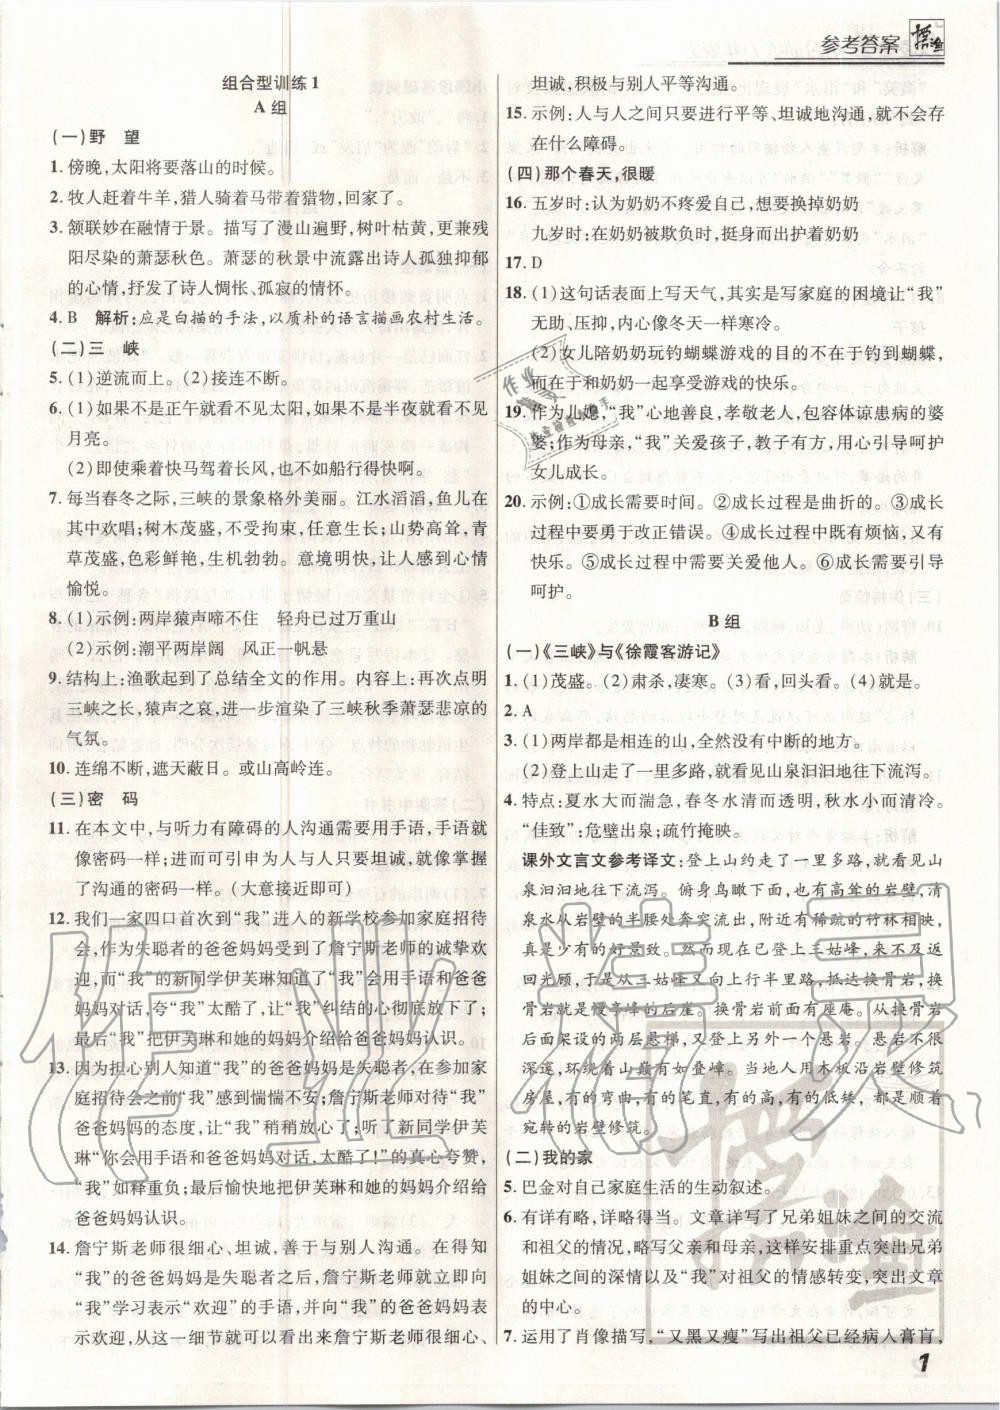 参考答案
组合型训练1
A 组
(一)野　望
1. 傍晚,太阳将要落山的时候。
2. 牧人赶着牛羊,猎人骑着马带着猎物,回家了。
3. 颔联妙在融情于景。描写了漫山遍野,树叶枯黄,更兼残
阳尽染的萧瑟秋色。萧瑟的秋景中流露出诗人孤独抑郁
的心情,抒发了诗人惆怅、孤寂的情怀。
4. B　解析:应是白描的手法,以质朴的语言描画农村生活。
(二)三　峡
5. (1)逆流而上。(2)接连不断。
6. (1)如果不是正午就看不见太阳,如果不是半夜就看不见
月亮。
(2)即使乘着快马驾着长风,也不如船行得快啊。
7. 每当春冬之际,三峡的景象格外美丽。江水滔滔,鱼儿在
其中欢唱;树木茂盛,不受拘束,任意生长;山势高耸,青
草茂盛,色彩鲜艳,生机勃勃。意境明快,让人感到心情
愉悦。
8. (1)示例:两岸猿声啼不住　轻舟已过万重山
(2)示例:潮平两岸阔　风正一帆悬
9. 结构上:渔歌起到了总结全文的作用。内容上:再次点明
三峡之长,猿声之哀,进一步渲染了三峡秋季萧瑟悲凉的
气氛。
10. 连绵不断,遮天蔽日。或山高岭连。
(三)密　码
11. 在本文中,与听力有障碍的人沟通需要用手语,手语就
像密码一样;进而可引申为人与人只要坦诚,就像掌握
了沟通的密码一样。(大意接近即可)
12. 我们一家四口首次到“我”进入的新学校参加家庭招待
会,作为失聪者的爸爸妈妈受到了詹宁斯老师的诚挚欢
迎,而“我”的新同学伊芙琳知道了“我”会用手语和爸爸
妈妈对话,夸“我”太酷了,让“我”纠结的心彻底放下了;
最后“我”把伊芙琳和她的妈妈介绍给爸爸妈妈认识。
13. 因为担心别人知道“我”的爸爸妈妈是失聪者,在参加家
庭招待会之前“我”感到惴惴不安;詹宁斯老师对待“我”
爸爸妈妈的态度,让“我”稍稍放心了;听了新同学伊芙
琳“你会用手语和爸爸妈妈对话,太酷了!”的真心夸赞,
“我”如释重负;最后愉快地把伊芙琳和她的妈妈介绍给
爸爸妈妈认识。
14. 詹宁斯老师很细心、坦诚,善于与别人沟通。在得知
“我”的爸爸妈妈是失聪者之后,詹宁斯老师就立即向
“我”学习表示“欢迎”的手语,并向“我”的爸爸妈妈表
示欢迎,从这一细节就可以看出来詹宁斯老师很细心、
坦诚,积极与别人平等沟通。
15. 示例:人与人之间只要进行平等、坦诚地沟通,就不会存
在什么障碍。
(四)那个春天,很暖
16. 五岁时:认为奶奶不疼爱自己,想要换掉奶奶
九岁时:在奶奶被欺负时,挺身而出护着奶奶
17. D
18. (1)这句话表面上写天气,其实是写家庭的困境让“我”
无助、压抑,内心像冬天一样寒冷。
(2)女儿陪奶奶玩钓蝴蝶游戏的目的不在于钓到蝴蝶,
而在于和奶奶一起享受游戏的快乐。
19. 作为儿媳,“我”心地善良,孝敬老人,包容体谅患病的婆
婆;作为母亲,“我”关爱孩子,教子有方,用心引导呵护
女儿成长。
20. 示例:①成长需要时间。②成长过程是曲折的。③成长
过程中要勇于改正错误。④成长过程中既有烦恼,又有
快乐。⑤成长过程中需要关爱他人。⑥成长需要引导
呵护。
B 组
(一)《三峡》与《徐霞客游记》
1. (1)茂盛。(2)肃杀,凄寒。(3)看,回头看。(4)就是。
2. A
3. (1)两岸都是相连的山,全然没有中断的地方。
(2)登上山走了一里多路,就看见山泉汩汩地往下流泻。
4. 特点:夏水大而湍急,春冬水清而透明,秋水小而清冷。
“佳致”:危壁出泉;疏竹掩映。
课外文言文参考译文:登上山约走了一里多路,就看见山
泉汩汩地往下流泻。俯身鸟瞰下面,有高耸的岩壁,清
泉水从岩壁的半腰处奔突流出,附近有稀疏的竹林相映,
真是少有的好景致。然而现在已登上三姑峰,来不及返
回光顾,于是从三姑峰又向上行半里路,抵达换骨岩,换
骨岩就是幔亭峰的后崖。换骨岩前面有座庵。从换骨岩
后面架设的两层悬梯,又登上一个悬岩。悬岩不很
深邃,环绕着山巅有如叠嶂。当地人用木板沿岩壁修筑
房屋,有的弯曲,有的笔直,有的高,有的低矮,都是顺着
宛转的岩壁修筑。
(二)我的家
5. 巴金对自己家庭生活的生动叙述。
6. 有详有略,详略得当。文章详写了兄弟姐妹之间的交流
和祖父的情况,略写父亲和母亲,这样安排重点突出兄弟
姐妹之间的深情以及“我”对祖父的情感转变,突出文章
的中心。
7. 运用了肖像描写,“又黑又瘦”写出祖父已经病入膏肓,
1
作业精灵